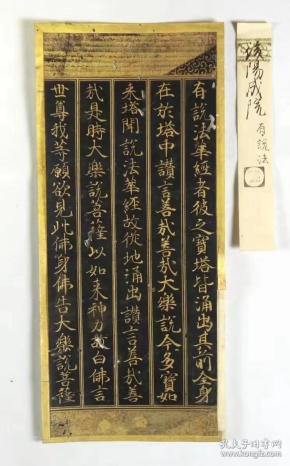 有說法華經者彼之寶塔皆涌出其前全身
在於塔中讚言善哉善哉大樂說今多寶如
来塔聞說法華經故從地涌出讚言善哉善
哉是時大樂說菩薩以如来神力故白佛言
世尊我等願欲見此佛身佛告大樂說菩薩
陽成院
有說法
孔夫子旧书网
www.kongfz.com